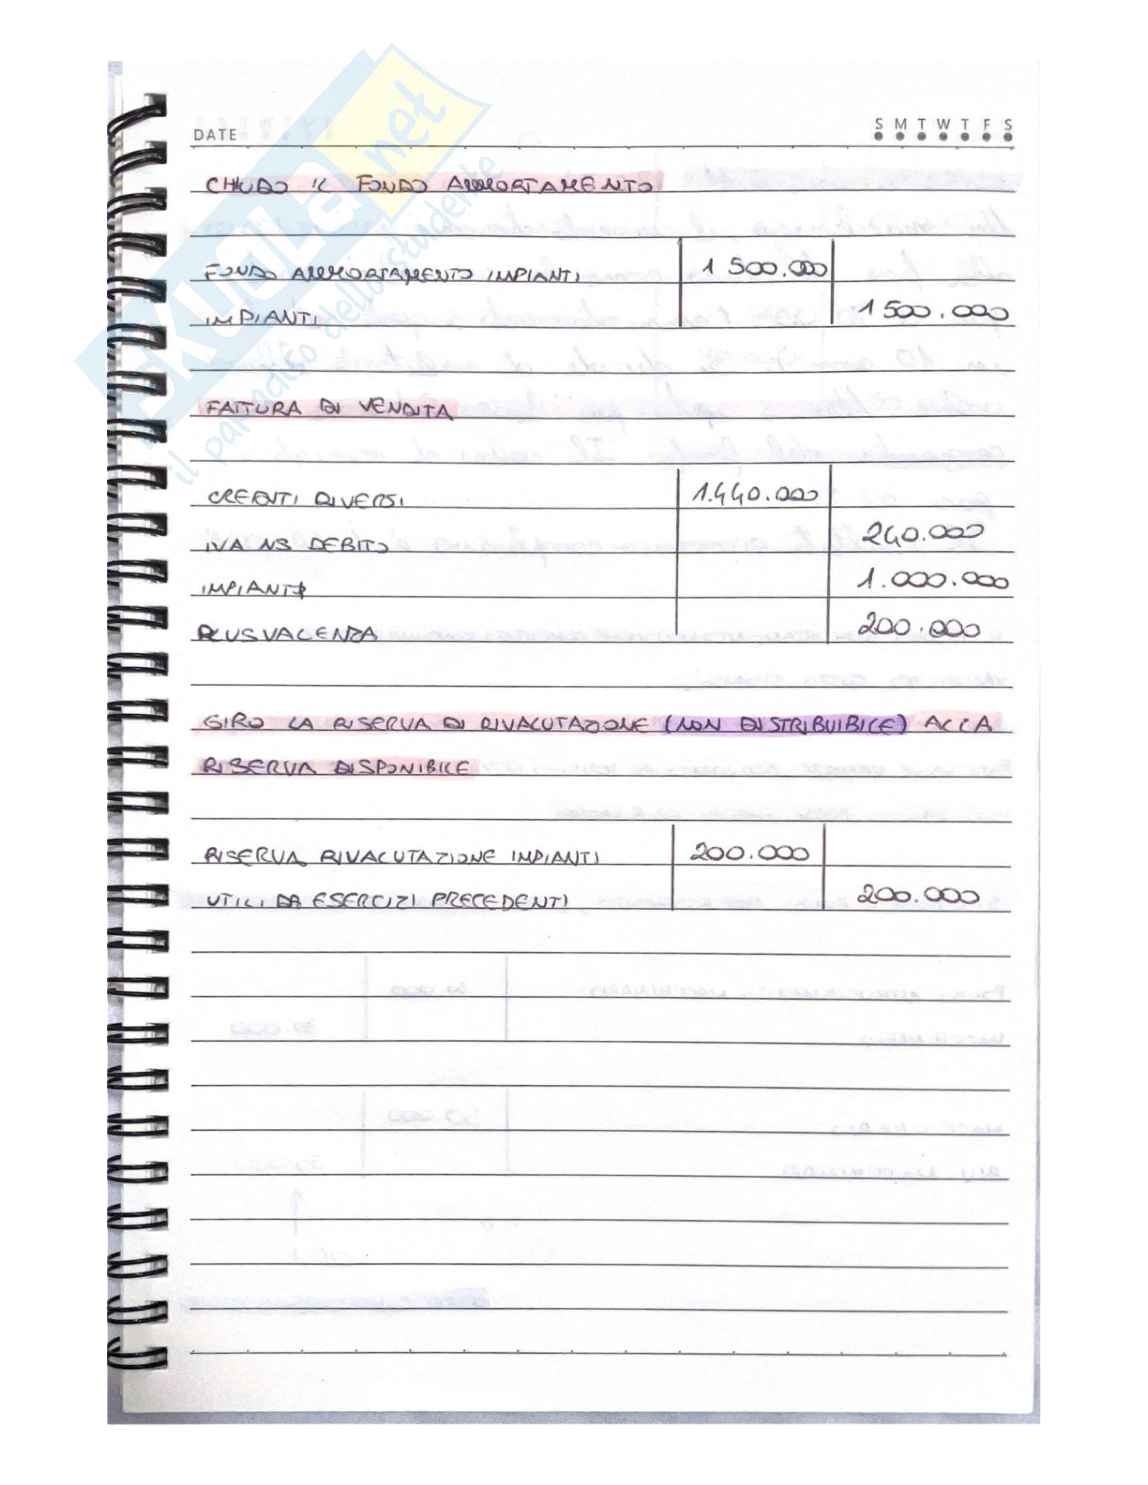 SKUOLA.net
il paradiso dello studente
DATE
S M T W T F S
CHIUDO IL FONDO AMMORTAMENTO
FONDO AMMORTAMENTO IMPIANTI 1 500.000
IMPIANTI 1 500.000
FATTURA DI VENDITA
CREDITI DIVERSI 1.440.000
IVA NS DEBITO 240.000
IMPIANTI 1.000.000
PLUSVALENZA 200.000
GIRO LA RISERVA DI RIVALUTAZIONE (NON DISTRIBUIBILE) ALLA
RISERVA DISPONIBILE
RISERVA RIVALUTAZIONE IMPIANTI 200.000
UTILI DA ESERCIZI PRECEDENTI 200.000